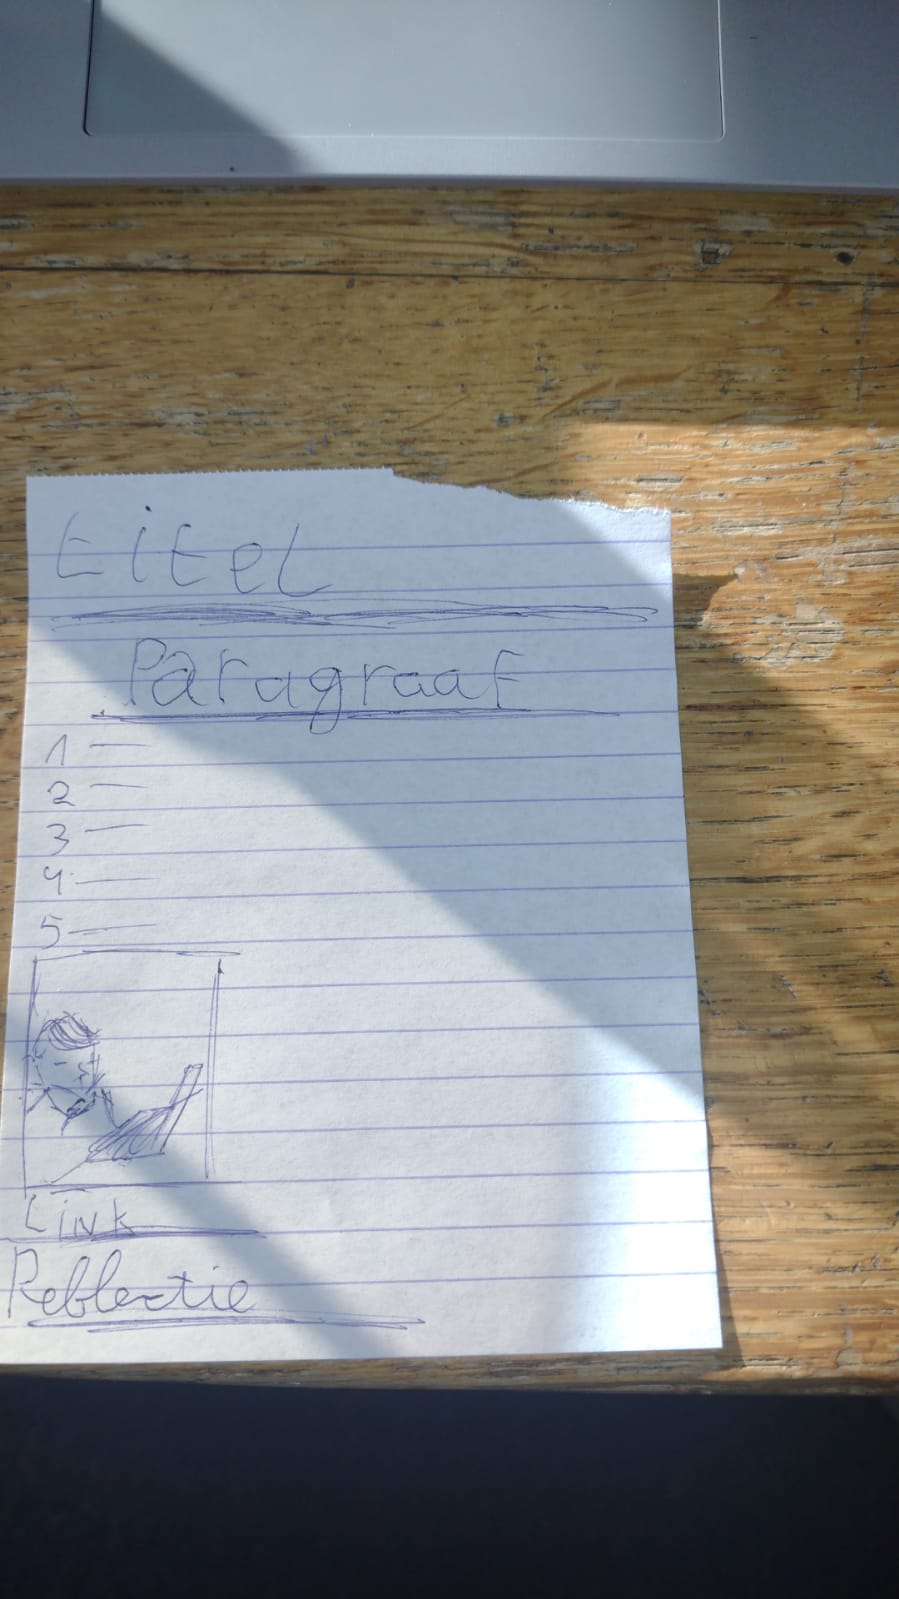 titel
Paragraaf
1 —
2 —
3 —
4 —
5 —
Link
Reflectie